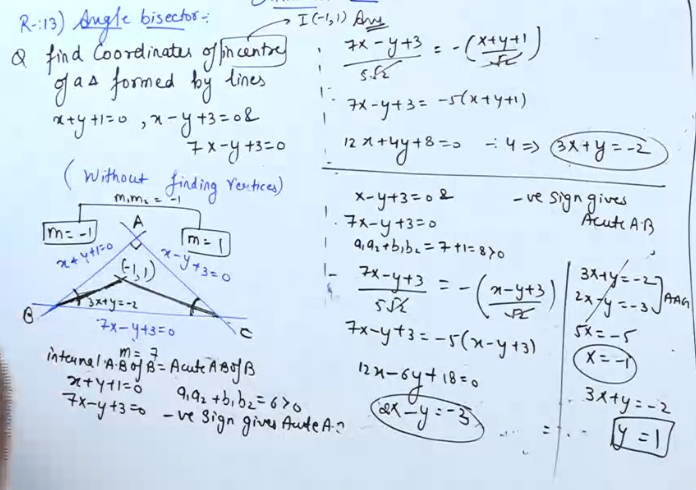 R-:13) Angle bisector:-
→ I(-1,1) Ans
Q find Coordinates of incentre
of a Δ formed by lines
x+y+1=0 , x-y+3=0 &
7x-y+3=0
(Without finding vertices)
m₁m₂ = -1
m=-1
A
m=1
x+y+1=0
x-y+3=0
(-1,1)
3x+y=-2
B
7x-y+3=0
C
m=7
internal A.B of B = Acute AB of B
x+y+1=0
7x-y+3=0
a₁a₂+b₁b₂=6>0
-ve sign gives Acute A.B
7x-y+3/5√2 = -(x+y+1/√2)
7x-y+3=-5(x+y+1)
12x+4y+8=0 ÷4 ⇒ 3x+y=-2
x-y+3=0 &
7x-y+3=0
-ve sign gives
Acute A.B
a₁a₂+b₁b₂=7+1=8>0
7x-y+3/5√2 = -(x-y+3/√2)
7x-y+3=-5(x-y+3)
12x-6y+18=0
2x-y=-3
3x+y=-2
2x-y=-3
5x=-5
x=-1
3x+y=-2
y=1